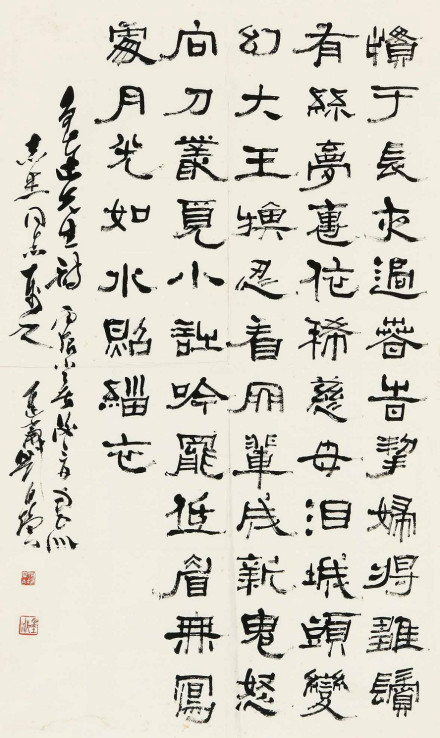 慣于長夜過春時挈婦將雛鬢
有絲夢裏依稀慈母泪城頭變
幻大王旗忍看朋輩成新鬼怒
向刀叢覓小詩吟罷低眉無寫
處月光如水照緇衣
魯迅先生詩 丙辰
同志